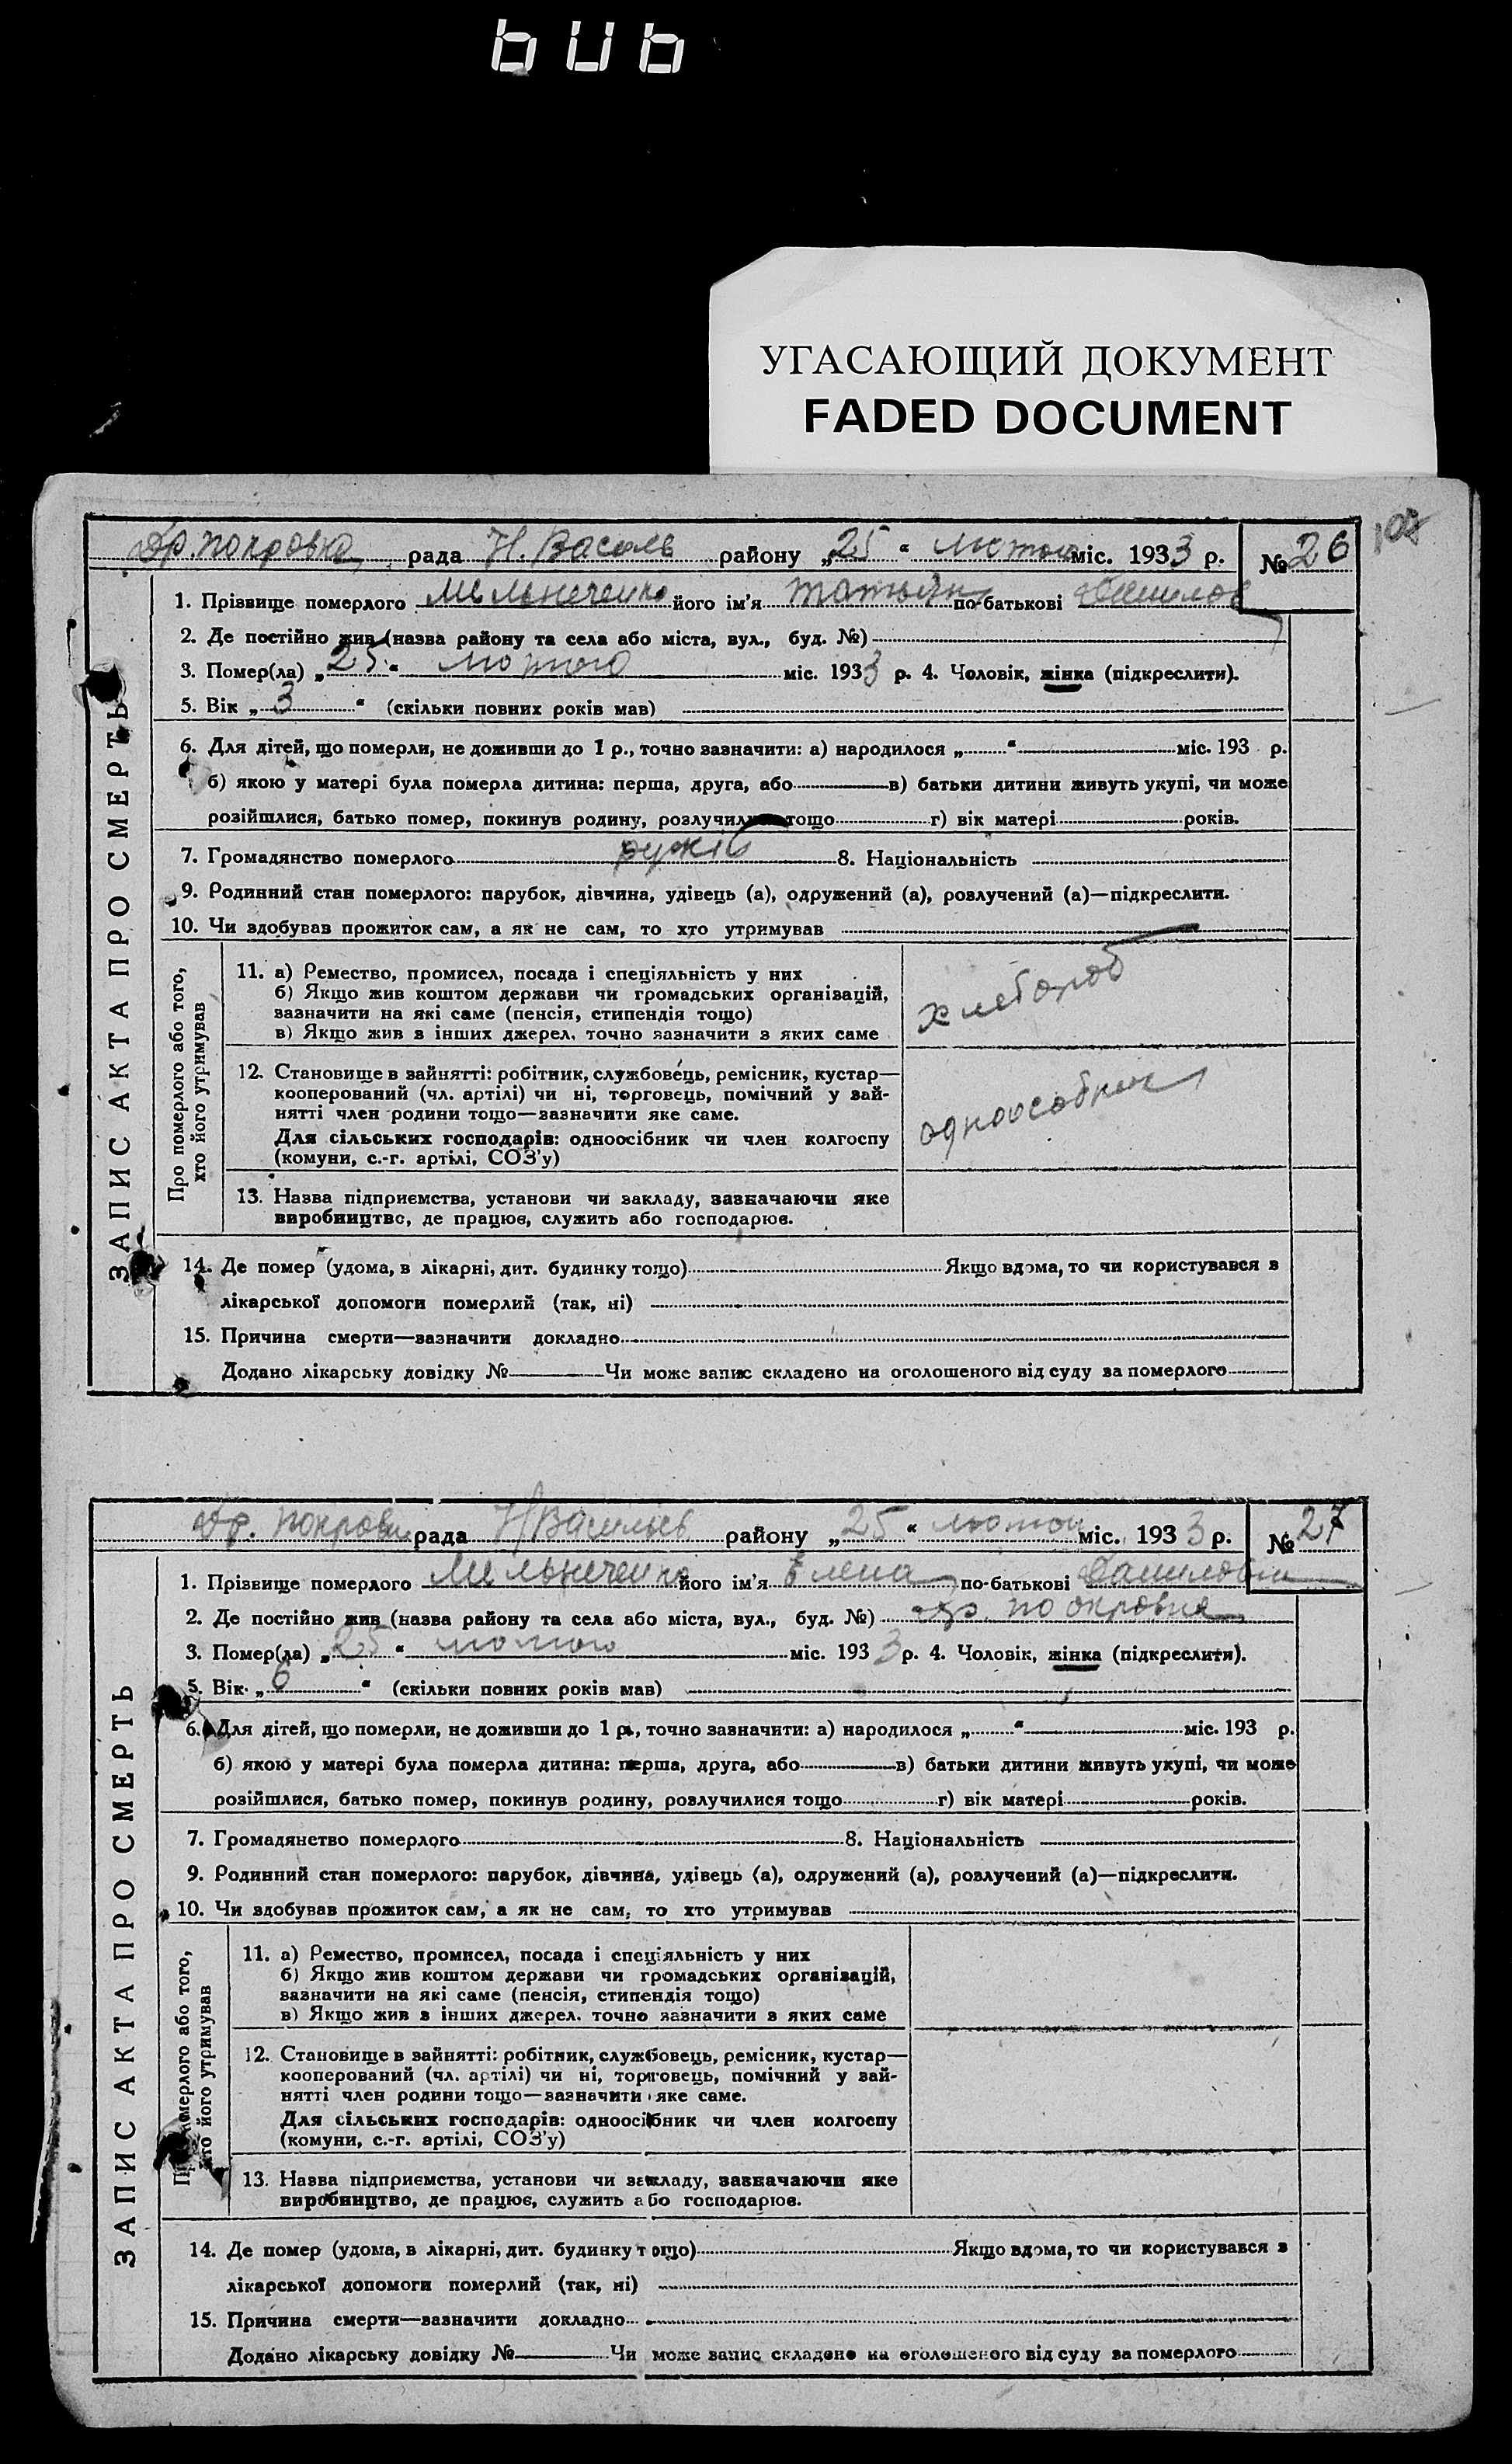 УГАСАЮЩИЙ ДОКУМЕНТ
FADED DOCUMENT
108
ЗАПИС АКТА ПРО СМЕРТЬ
Др. Покровка рада Н. Василь району „25“ лютого міс. 1933 р. № 26
1. Прізвище померлого Мельнеченко його ім’я Татьяна по-батькові Данилов
2. Де постійно жив (назва району та села або міста, вул., буд. №)
3. Помер(ла) „25“ лютого міс. 1933 р. 4. Чоловік, жінка (підкреслити).
5. Вік „3“ (скільки повних років мав)
6. Для дітей, що померли, не доживши до 1 р., точно зазначити: а) народилося „ “ міс. 193 р.
б) якою у матері була померла дитина: перша, друга, або в) батьки дитини живуть укупі, чи може
розійшлися, батько помер, покинув родину, розлучилися тощо г) вік матері років.
7. Громадянство померлого 8. Національність
9. Родинний стан померлого: парубок, дівчина, удівець (а), одружений (а), розлучений (а)—підкреслити.
10. Чи здобував прожиток сам, а як не сам, то хто утримував
Про померлого або того,
хто його утримував
11. а) Ремество, промисел, посада і спеціяльність у них
б) Якщо жив коштом держави чи громадських організацій,
зазначити на які саме (пенсія, стипендія тощо)
в) Якщо жив з інших джерел, точно зазначити з яких саме
хлебороб
12. Становище в зайнятті: робітник, службовець, ремісник, кустар—
кооперований (чл. артілі) чи ні, торговець, помічний у зай-
нятті член родини тощо—зазначити яке саме.
Для сільських господарів: одноосібник чи член колгоспу
(комуни, с.-г. артілі, СОЗ’у)
одноособник
13. Назва підприємства, установи чи закладу, зазначаючи яке
виробництво, де працює, служить або господарює.
14. Де помер (удома, в лікарні, дит. будинку тощо) Якщо вдома, то чи користувався з
лікарської допомоги померлий (так, ні)
15. Причина смерти—зазначити докладно
Додано лікарську довідку № Чи може запис складено на оголошеного від суду за померлого
ЗАПИС АКТА ПРО СМЕРТЬ
Др. Покровка рада Н Васильев району „25“ лютого міс. 1933 р. № 27
1. Прізвище померлого Мельнеченко його ім’я Елена по-батькові Даниловна
2. Де постійно жив (назва району та села або міста, вул., буд. №) др. поокровка
3. Помер(ла) „25“ лютого міс. 1933 р. 4. Чоловік, жінка (підкреслити).
5. Вік „6“ (скільки повних років мав)
6. Для дітей, що померли, не доживши до 1 р., точно зазначити: а) народилося „ “ міс. 193 р.
б) якою у матері була померла дитина: перша, друга, або в) батьки дитини живуть укупі, чи може
розійшлися, батько помер, покинув родину, розлучилися тощо г) вік матері років.
7. Громадянство померлого 8. Національність
9. Родинний стан померлого: парубок, дівчина, удівець (а), одружений (а), розлучений (а)—підкреслити.
10. Чи здобував прожиток сам, а як не сам, то хто утримував
Про померлого або того,
хто його утримував
11. а) Ремество, промисел, посада і спеціяльність у них
б) Якщо жив коштом держави чи громадських організацій,
зазначити на які саме (пенсія, стипендія тощо)
в) Якщо жив з інших джерел, точно зазначити з яких саме
12. Становище в зайнятті: робітник, службовець, ремісник, кустар—
кооперований (чл. артілі) чи ні, торговець, помічний у зай-
нятті член родини тощо—зазначити яке саме.
Для сільських господарів: одноосібник чи член колгоспу
(комуни, с.-г. артілі, СОЗ’у)
13. Назва підприємства, установи чи закладу, зазначаючи яке
виробництво, де працює, служить або господарює.
14. Де помер (удома, в лікарні, дит. будинку тощо) Якщо вдома, то чи користувався з
лікарської допомоги померлий (так, ні)
15. Причина смерти—зазначити докладно
Додано лікарську довідку № Чи може запис складено на оголошеного від суду за померлого